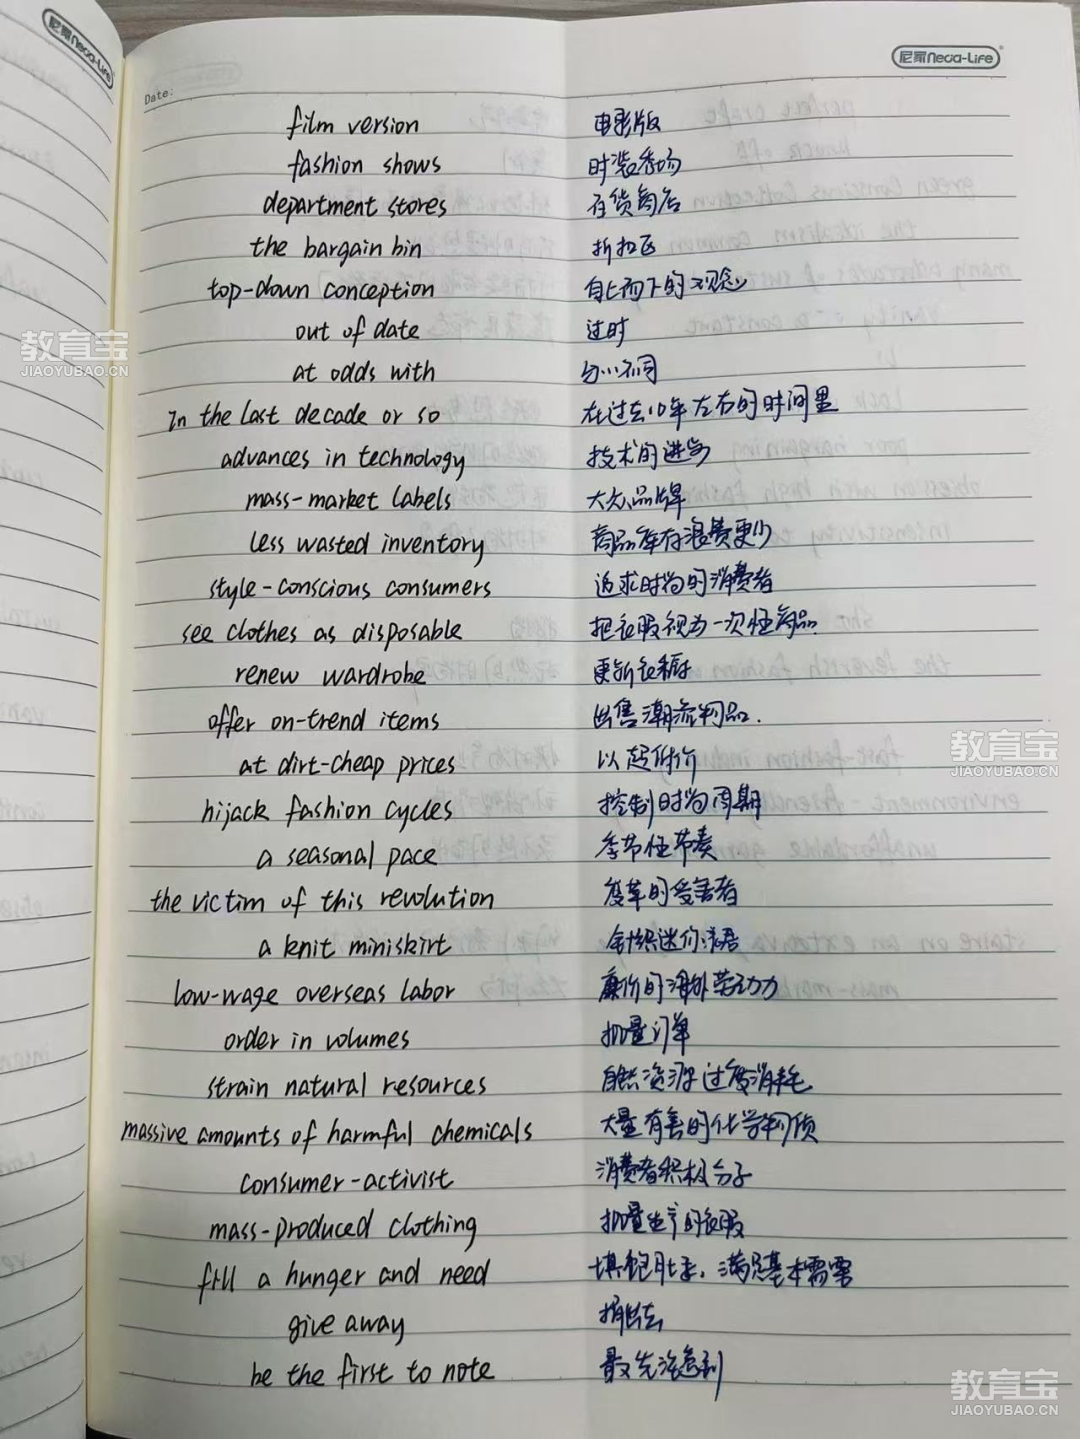 尼家Neca-Life
尼家Neca-Life
Date:
film version 电影版
fashion shows 时装秀场
department stores 百货商店
the bargain bin 折扣区
top-down conception 自上而下的观念
out of date 过时
at odds with 与…不同
In the last decade or so 在过去10年左右的时间里
advances in technology 技术的进步
mass-market labels 大众品牌
less wasted inventory 商品库存浪费更少
style-conscious consumers 追求时尚的消费者
see clothes as disposable 把衣服视为一次性商品.
renew wardrobe 更新衣橱
offer on-trend items 出售潮流物品.
at dirt-cheap prices 以超低价
hijack fashion cycles 控制时尚周期
a seasonal pace 季节性节奏
the victim of this revolution 变革的受害者
a knit miniskirt 针织迷你裙
low-wage overseas labor 廉价的海外劳动力
order in volumes 批量订单
strain natural resources 自然资源过度消耗
massive amounts of harmful chemicals 大量有害的化学物质
consumer-activist 消费者积极分子
mass-produced clothing 批量生产的衣服
fill a hunger and need 填饱肚子，满足基本需要
give away 捐出去
be the first to note 最先注意到
教育宝
JIAOYUBAO.CN
教育宝
JIAOYUBAO.CN
教育宝
JIAOYUBAO.CN